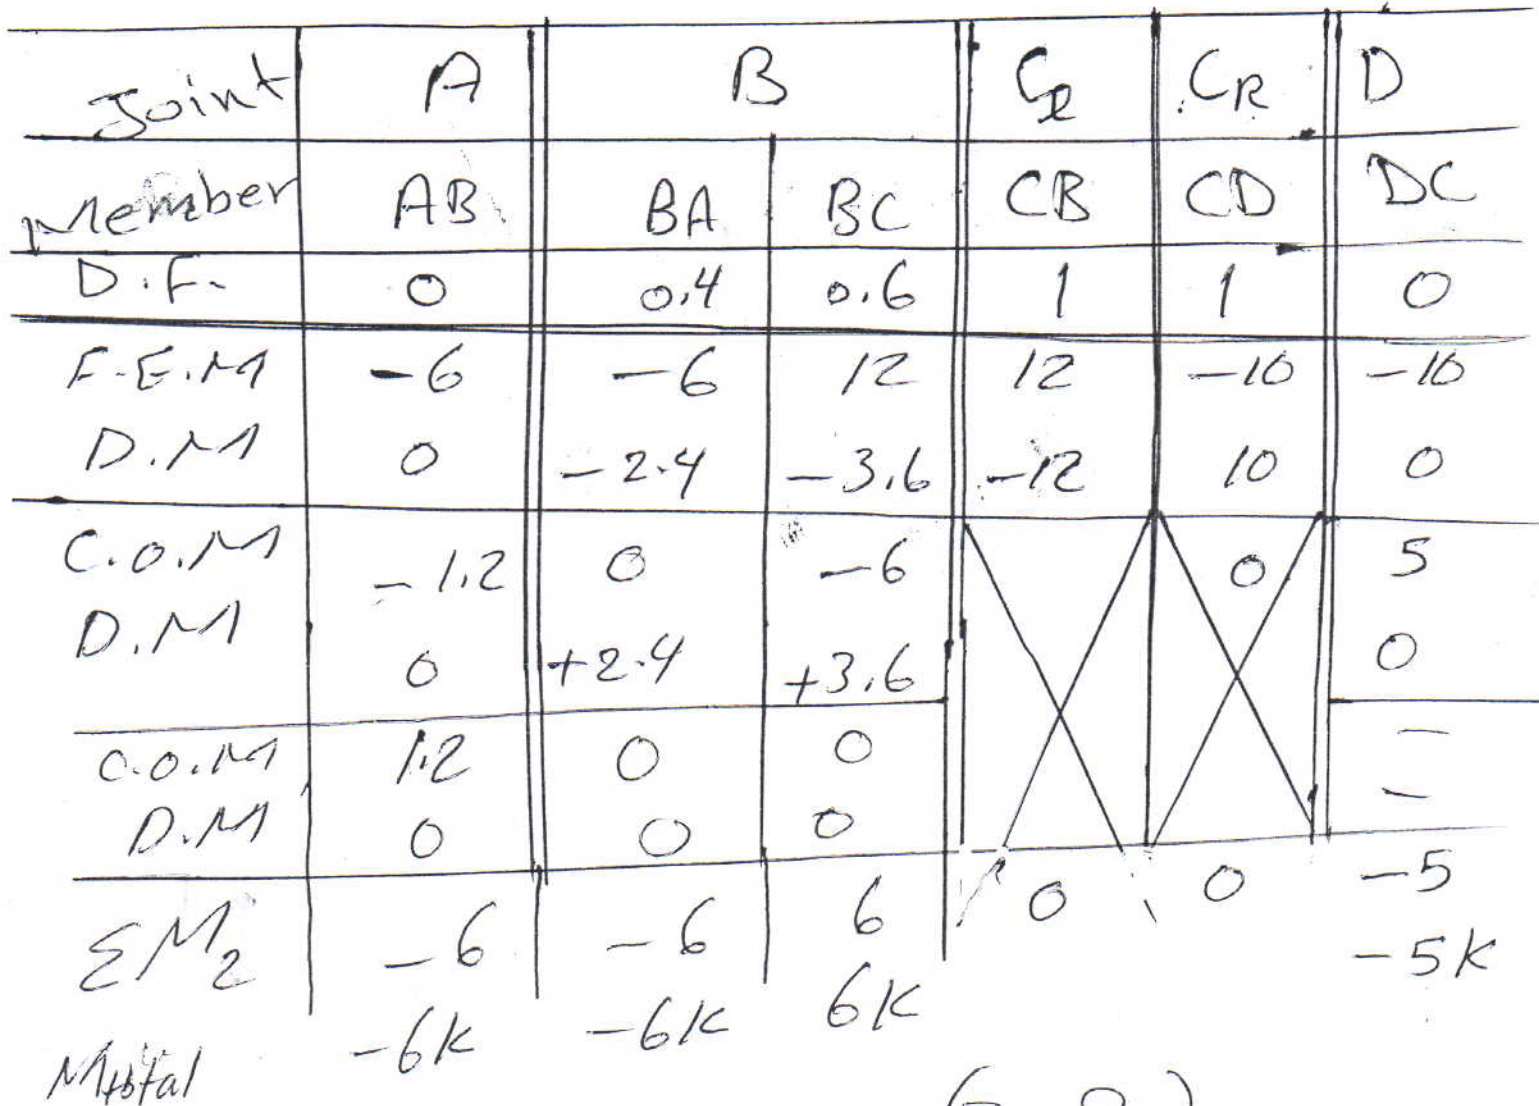 Joint A B Cl CR D
Member AB BA BC CB CD DC
D.F. 0 0.4 0.6 1 1 0
F.E.M -6 -6 12 12 -10 -10
D.M 0 -2.4 -3.6 -12 10 0
C.O.M -1.2 0 -6 0 5
D.M 0 +2.4 +3.6 0
C.O.M 1.2 0 0 -
D.M 0 0 0 -
ΣM2 -6 -6 6 0 0 -5
Mtotal -6K -6K 6K -5K